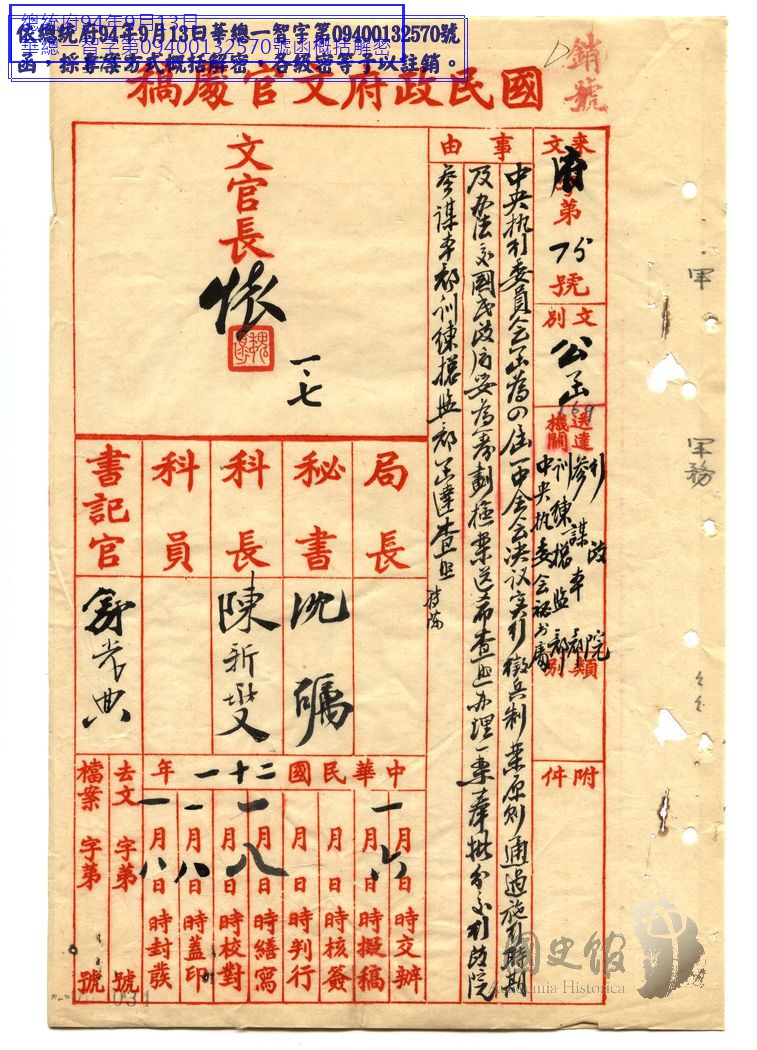 總統府94年9月13日
華總一智字第09400132570號函概括解密
依總統府94年9月13日華總一智字第09400132570號
函，採專簽方式概括解密，各級密等予以註銷。
銷號
國民政府文官處稿
來文
府字第75號
文別
公函
169
送達機關
行政院
參謀本部
訓練總監部
中央執委會秘書處
類別
附件
事由
中央執行委員會函為四屆一中全會決議實行徵兵制案原則通過施行時期
及办法交國民政府妥為籌劃施行檢案送希查照办理一案奉批分函行政院
參謀本部訓練總監部函達查照
文官長
懷
一、七
局長
秘書
沈礪
科長
陳新燮
科員
書記官
中華民國二十一年
一月六日時交辦
月日時擬稿
月日時核簽
月日時判行
一月八日時繕寫
月日時校對
一月八日時蓋印
一月八日時封發
去文 字第 號
檔案 字第 號
031
軍
軍務
國史館
Academia Historica